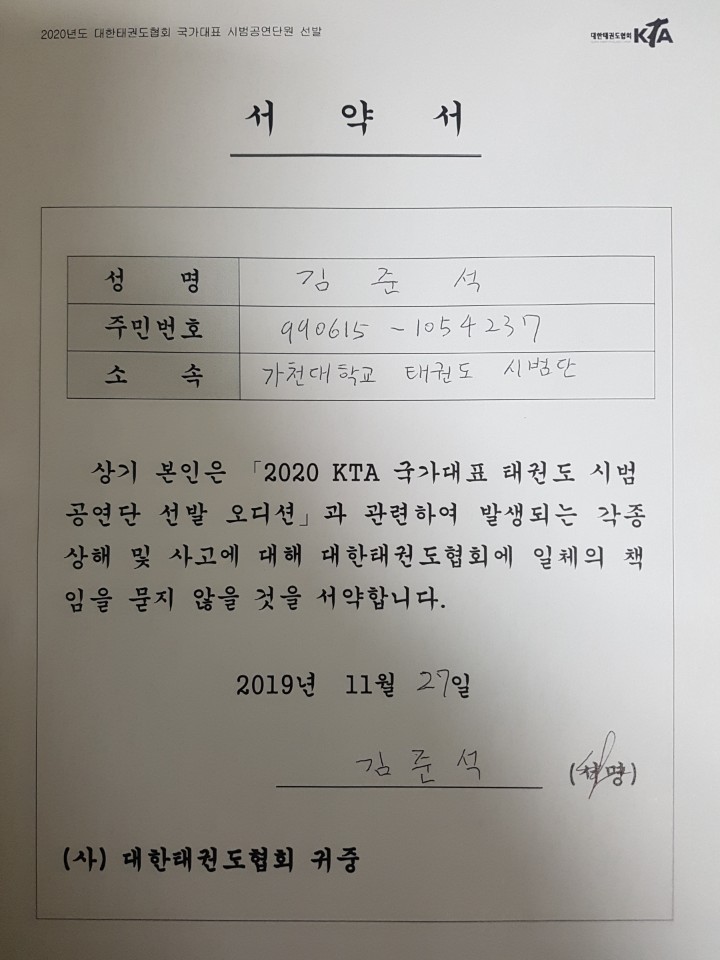 2020년도 대한태권도협회 국가대표 시범공연단원 선발
대한태권도협회 KTA
서 약 서
성 명 김 준 석
주민번호 990615-1054237
소 속 가천대학교 태권도 시범단
상기 본인은 「2020 KTA 국가대표 태권도 시범
공연단 선발 오디션」과 관련하여 발생되는 각종
상해 및 사고에 대해 대한태권도협회에 일체의 책
임을 묻지 않을 것을 서약합니다.
2019년 11월 27일
김 준 석 (서명)
(사) 대한태권도협회 귀중